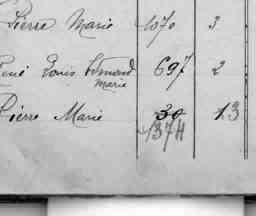 Pierre Marie 1070 3
René Louis Edmond 697 2
Marie
Pierre Marie 30 13
1374